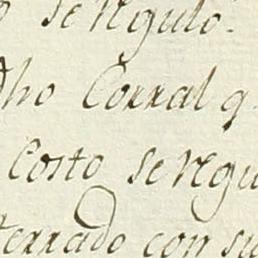 se regulò.
dho Corral q.
Costo se regu
terrado con su